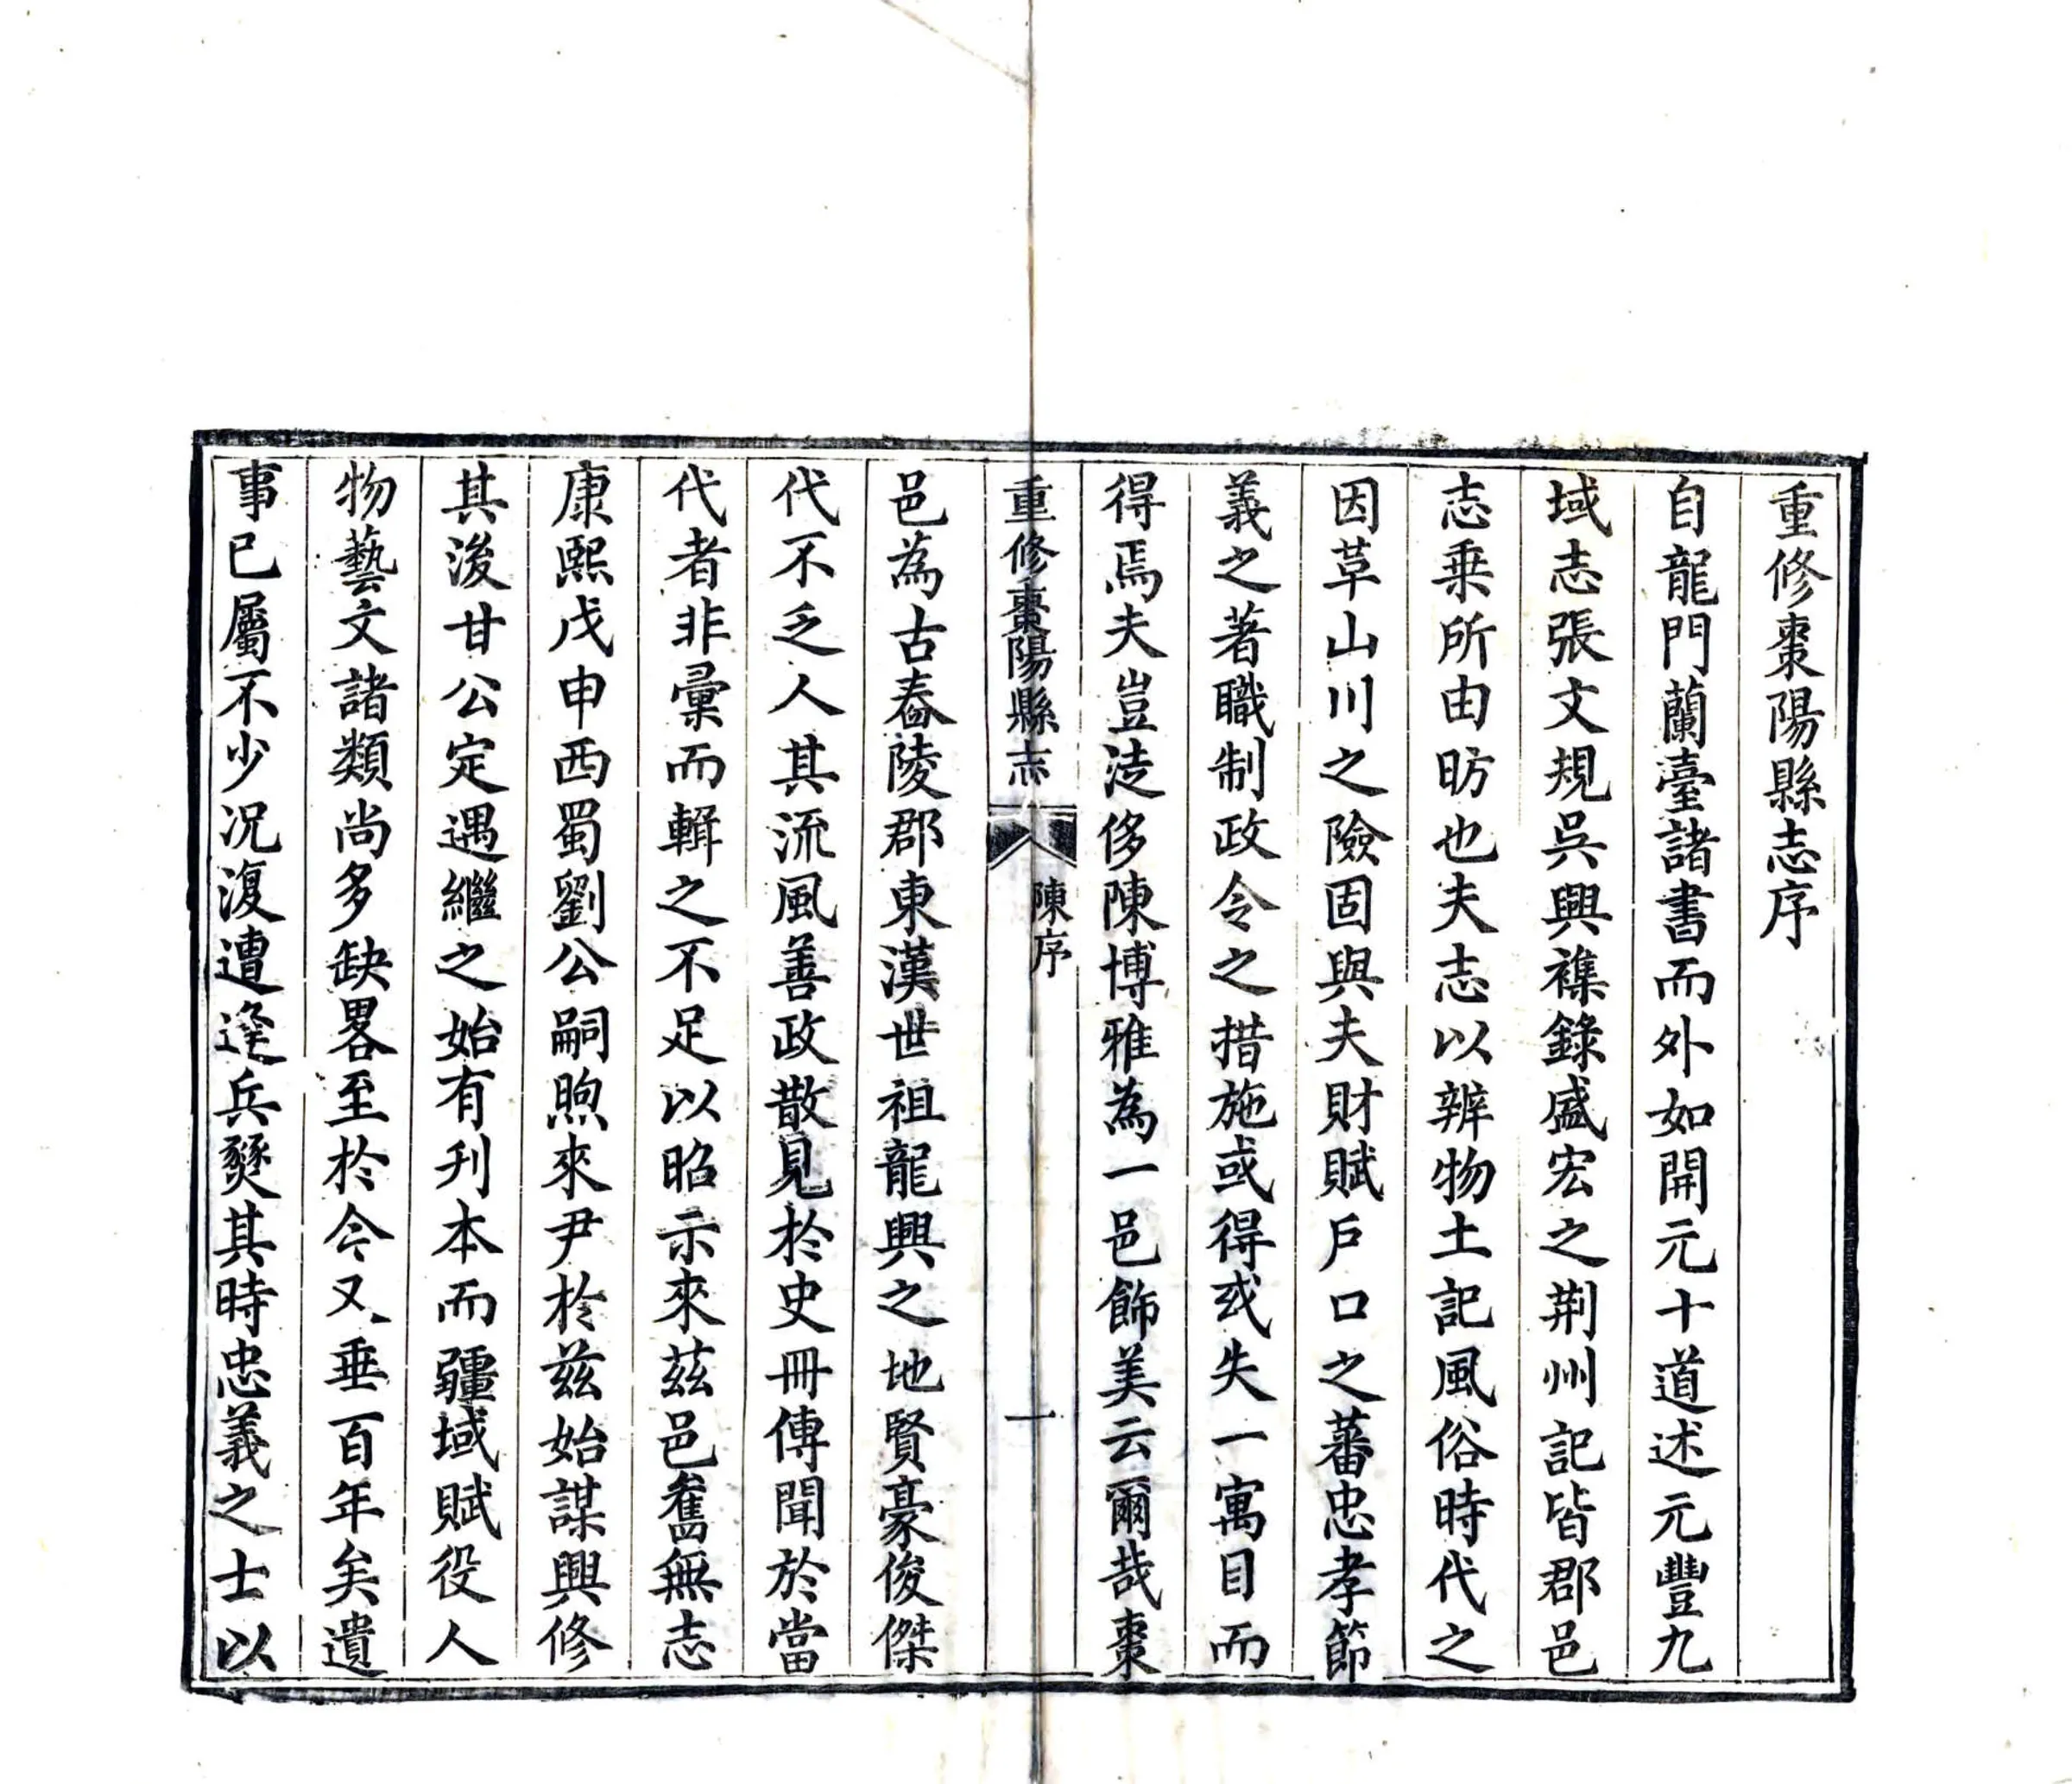 重修棗陽縣志序
自龍門蘭臺諸書而外如開元十道述元豐九
域志張文規吳興襍錄盛宏之荆州記皆郡邑
志乗所由昉也夫志以辨物土記風俗時代之
因革山川之險固與夫財賦戶口之蕃忠孝節
義之著職制政令之措施或得或失一寓目而
得焉夫豈徒侈陳博雅為一邑飾美云爾哉棗
重修棗陽縣志 陳序 一
邑為古舂陵郡東漢世祖龍興之地賢豪俊傑
代不乏人其流風善政散見於史冊傳聞於當
代者非彙而輯之不足以昭示來茲邑舊無志
康熙戊申西蜀劉公嗣煦來尹於茲始謀興修
其後甘公定遇繼之始有刋本而疆域賦役人
物藝文諸類尚多缺畧至於今又垂百年矣遺
事已屬不少况復遭逢兵燹其時忠義之士以